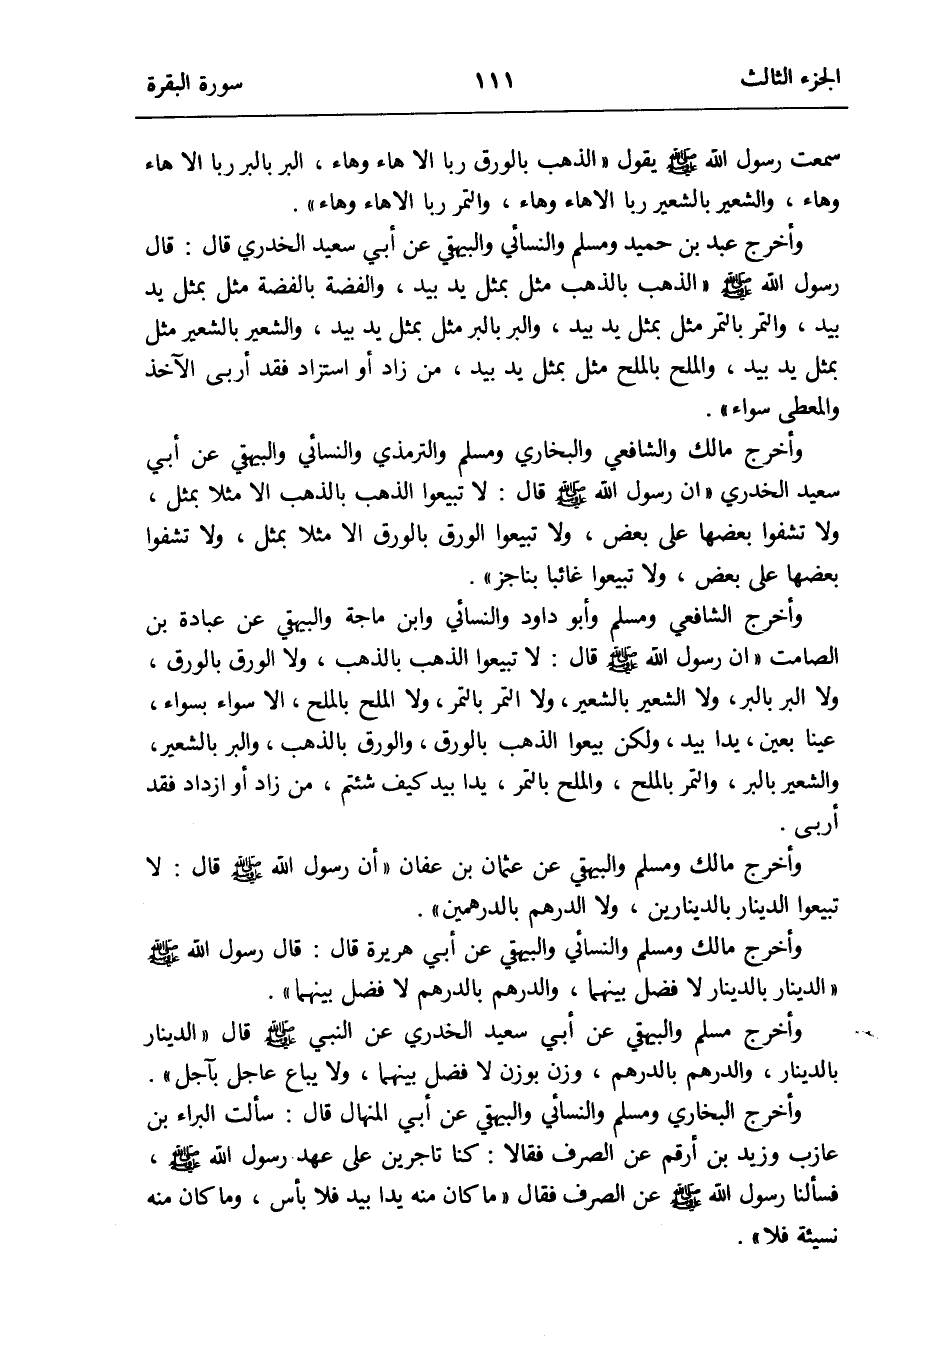 الجزء الثالث ١١١ سورة البقرة
سمعت رسول الله ﷺ يقول «الذهب بالورق ربا الا هاء وهاء ، البر بالبر ربا الا هاء
وهاء ، والشعير بالشعير ربا الاهاء وهاء ، والتمر ربا الاهاء وهاء» .
وأخرج عبد بن حميد ومسلم والنسائي والبيهقي عن أبي سعيد الخدري قال : قال
رسول الله ﷺ «الذهب بالذهب مثل بمثل يد بيد ، والفضة بالفضة مثل بمثل يد
بيد ، والتمر بالتمر مثل بمثل يد بيد ، والبر بالبر مثل بمثل يد بيد ، والشعير بالشعير مثل
بمثل يد بيد ، والملح بالملح مثل بمثل يد بيد ، من زاد أو استزاد فقد أربى الآخذ
والمعطى سواء» .
وأخرج مالك والشافعي والبخاري ومسلم والترمذي والنسائي والبيهقي عن أبي
سعيد الخدري «ان رسول الله ﷺ قال : لا تبيعوا الذهب بالذهب الا مثلا بمثل ،
ولا تشفوا بعضها على بعض ، ولا تبيعوا الورق بالورق الا مثلا بمثل ، ولا تشفوا
بعضها على بعض ، ولا تبيعوا غائبا بناجز» .
وأخرج الشافعي ومسلم وأبو داود والنسائي وابن ماجة والبيهقي عن عبادة بن
الصامت «ان رسول الله ﷺ قال : لا تبيعوا الذهب بالذهب ، ولا الورق بالورق ،
ولا البر بالبر، ولا الشعير بالشعير، ولا التمر بالتمر، ولا الملح بالملح ، الا سواء بسواء ،
عينا بعين، يدا بيد، ولكن بيعوا الذهب بالورق، والورق بالذهب، والبر بالشعير،
والشعير بالبر ، والتمر بالملح ، والملح بالتمر ، يدا بيد كيف شئتم ، من زاد أو ازداد فقد
أربى .
وأخرج مالك ومسلم والبيهقي عن عثمان بن عفان «أن رسول الله ﷺ قال : لا
تبيعوا الدينار بالدينارين ، ولا الدرهم بالدرهمين» .
وأخرج مالك ومسلم والنسائي والبيهقي عن أبي هريرة قال : قال رسول الله ﷺ
«الدينار بالدينار لا فضل بينهما ، والدرهم بالدرهم لا فضل بينهما» .
وأخرج مسلم والبيهقي عن أبي سعيد الخدري عن النبي ﷺ قال «الدينار
بالدينار ، والدرهم بالدرهم ، وزن بوزن لا فضل بينهما ، ولا يباع عاجل بآجل» .
وأخرج البخاري ومسلم والنسائي والبيهقي عن أبي المنهال قال : سألت البراء بن
عازب وزيد بن أرقم عن الصرف فقالا : كنا تاجرين على عهد رسول الله ﷺ ،
فسألنا رسول الله ﷺ عن الصرف فقال «ما كان منه يدا بيد فلا بأس ، وما كان منه
نسيئة فلا» .